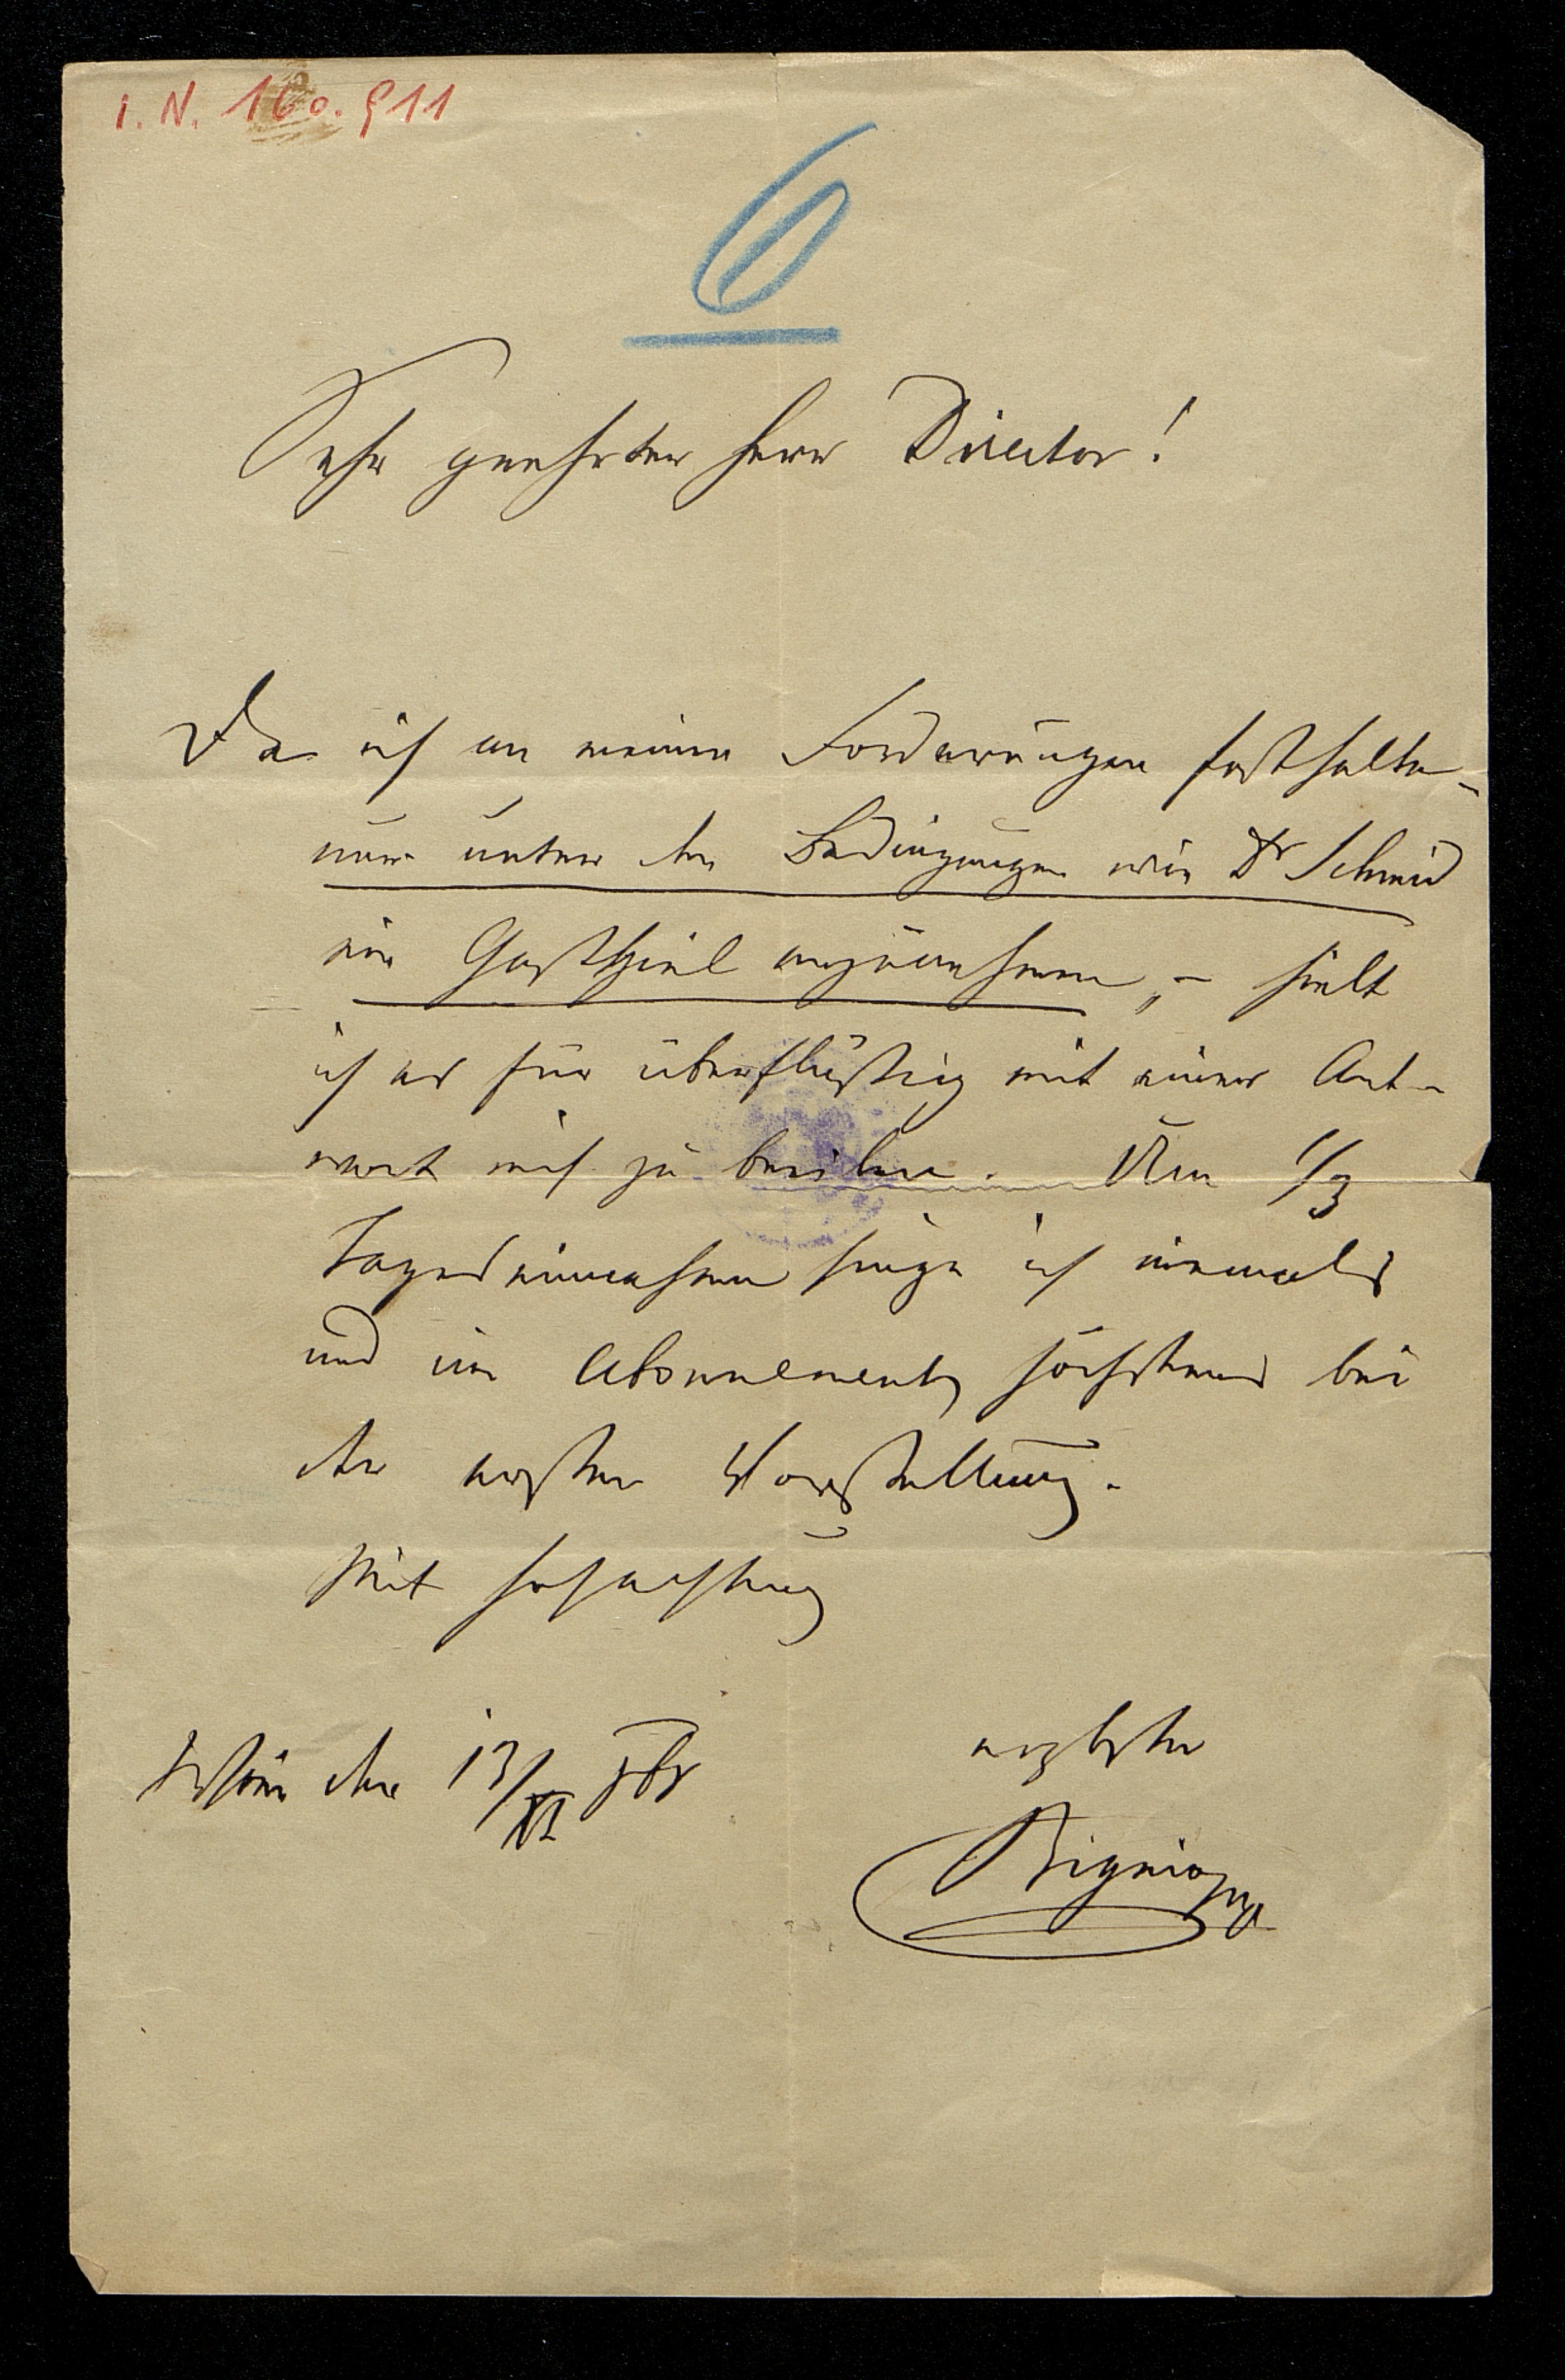 I. N. 160.911
6
Sehr geehrter Herr Director!
Da ich an meinen Forderungen festhalte –
nur unter den Bedingungen wie Dr Schmid
ein Gastspiel anzunehmen, – hielt
ich es für überflüssig mit einer Ant-
wort mich zu beeilen. Um 1/3
Tageseinnahmen singe ich niemals
und im Abonnement höchstens bei
der ersten Vorstellung.
Mit Hochachtung
ergebster
Wien den 13/XI
Bignio